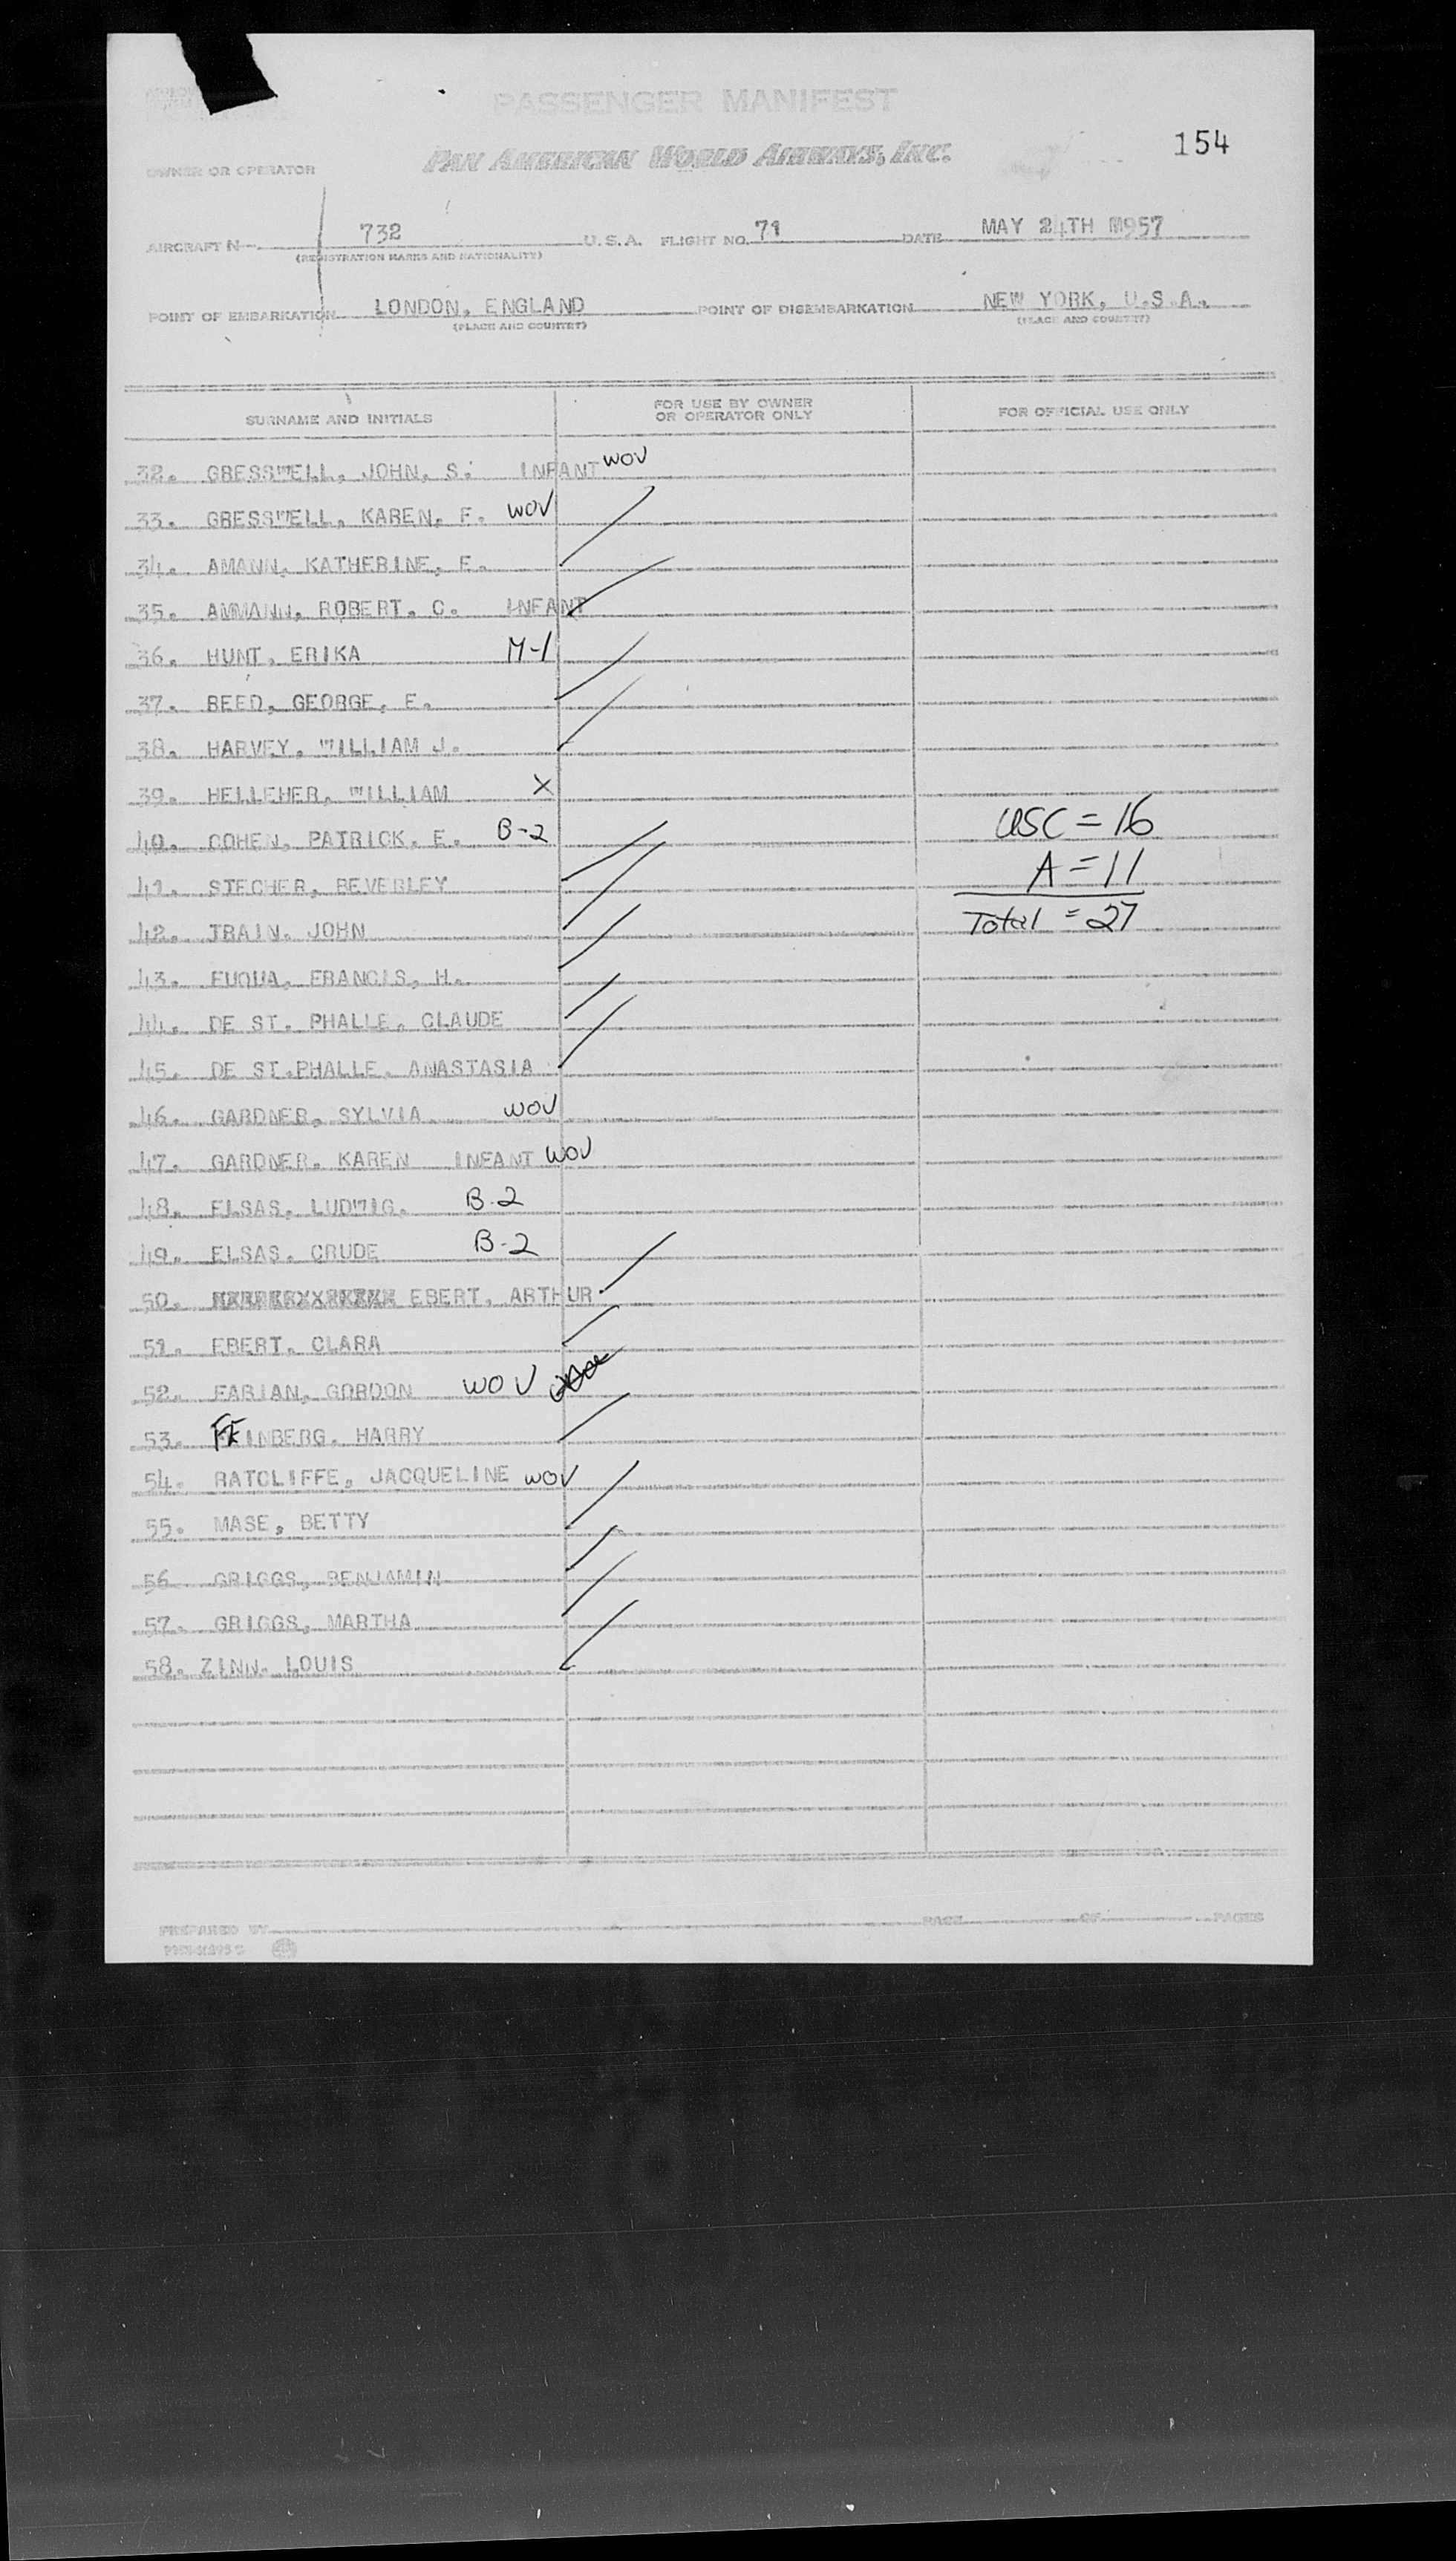 PASSENGER MANIFEST
154
PAN AMERICAN WORLD AIRWAYS, INC.
OWNER OR OPERATOR
AIRCRAFT N- 732 U.S.A. FLIGHT NO. 71 DATE MAY 24TH M957
(REGISTRATION MARKS AND NATIONALITY)
POINT OF EMBARKATION LONDON, ENGLAND POINT OF DISEMBARKATION NEW YORK, U.S.A.
(PLACE AND COUNTRY) (PLACE AND COUNTRY)
SURNAME AND INITIALS FOR USE BY OWNER OR OPERATOR ONLY FOR OFFICIAL USE ONLY
32. GRESSWELL, JOHN, S. INFANT WOV
33. GRESSWELL, KAREN, F. WOV
34. AMANN, KATHERINE, E.
35. AMMANN, ROBERT, C. INFANT
36. HUNT, ERIKA M-1
37. REED, GEORGE, E.
38. HARVEY, WILLIAM J.
39. HELLEHER, WILLIAM X
40. COHEN, PATRICK, E. B-2 USC = 16
41. STECHER, BEVERLEY A = 11
42. TRAIN, JOHN Total = 27
43. FUQUA, FRANCIS, H.
44. DE ST. PHALLE, CLAUDE
45. DE ST.PHALLE, ANASTASIA
46. GARDNER, SYLVIA WOV
47. GARDNER, KAREN INFANT WOV
48. ELSAS, LUDWIG. B-2
49. ELSAS, CRUDE B-2
50. EBERT, ARTHUR
51. EBERT, CLARA
52. FABIAN, GORDON WOV
53. FEINBERG, HARRY
54. RATCLIFFE, JACQUELINE WOV
55. MASE, BETTY
56 GRIGGS, BENJAMIN
57. GRIGGS, MARTHA
58. ZINN, LOUIS
PREPARED BY PAGE OF PAGES